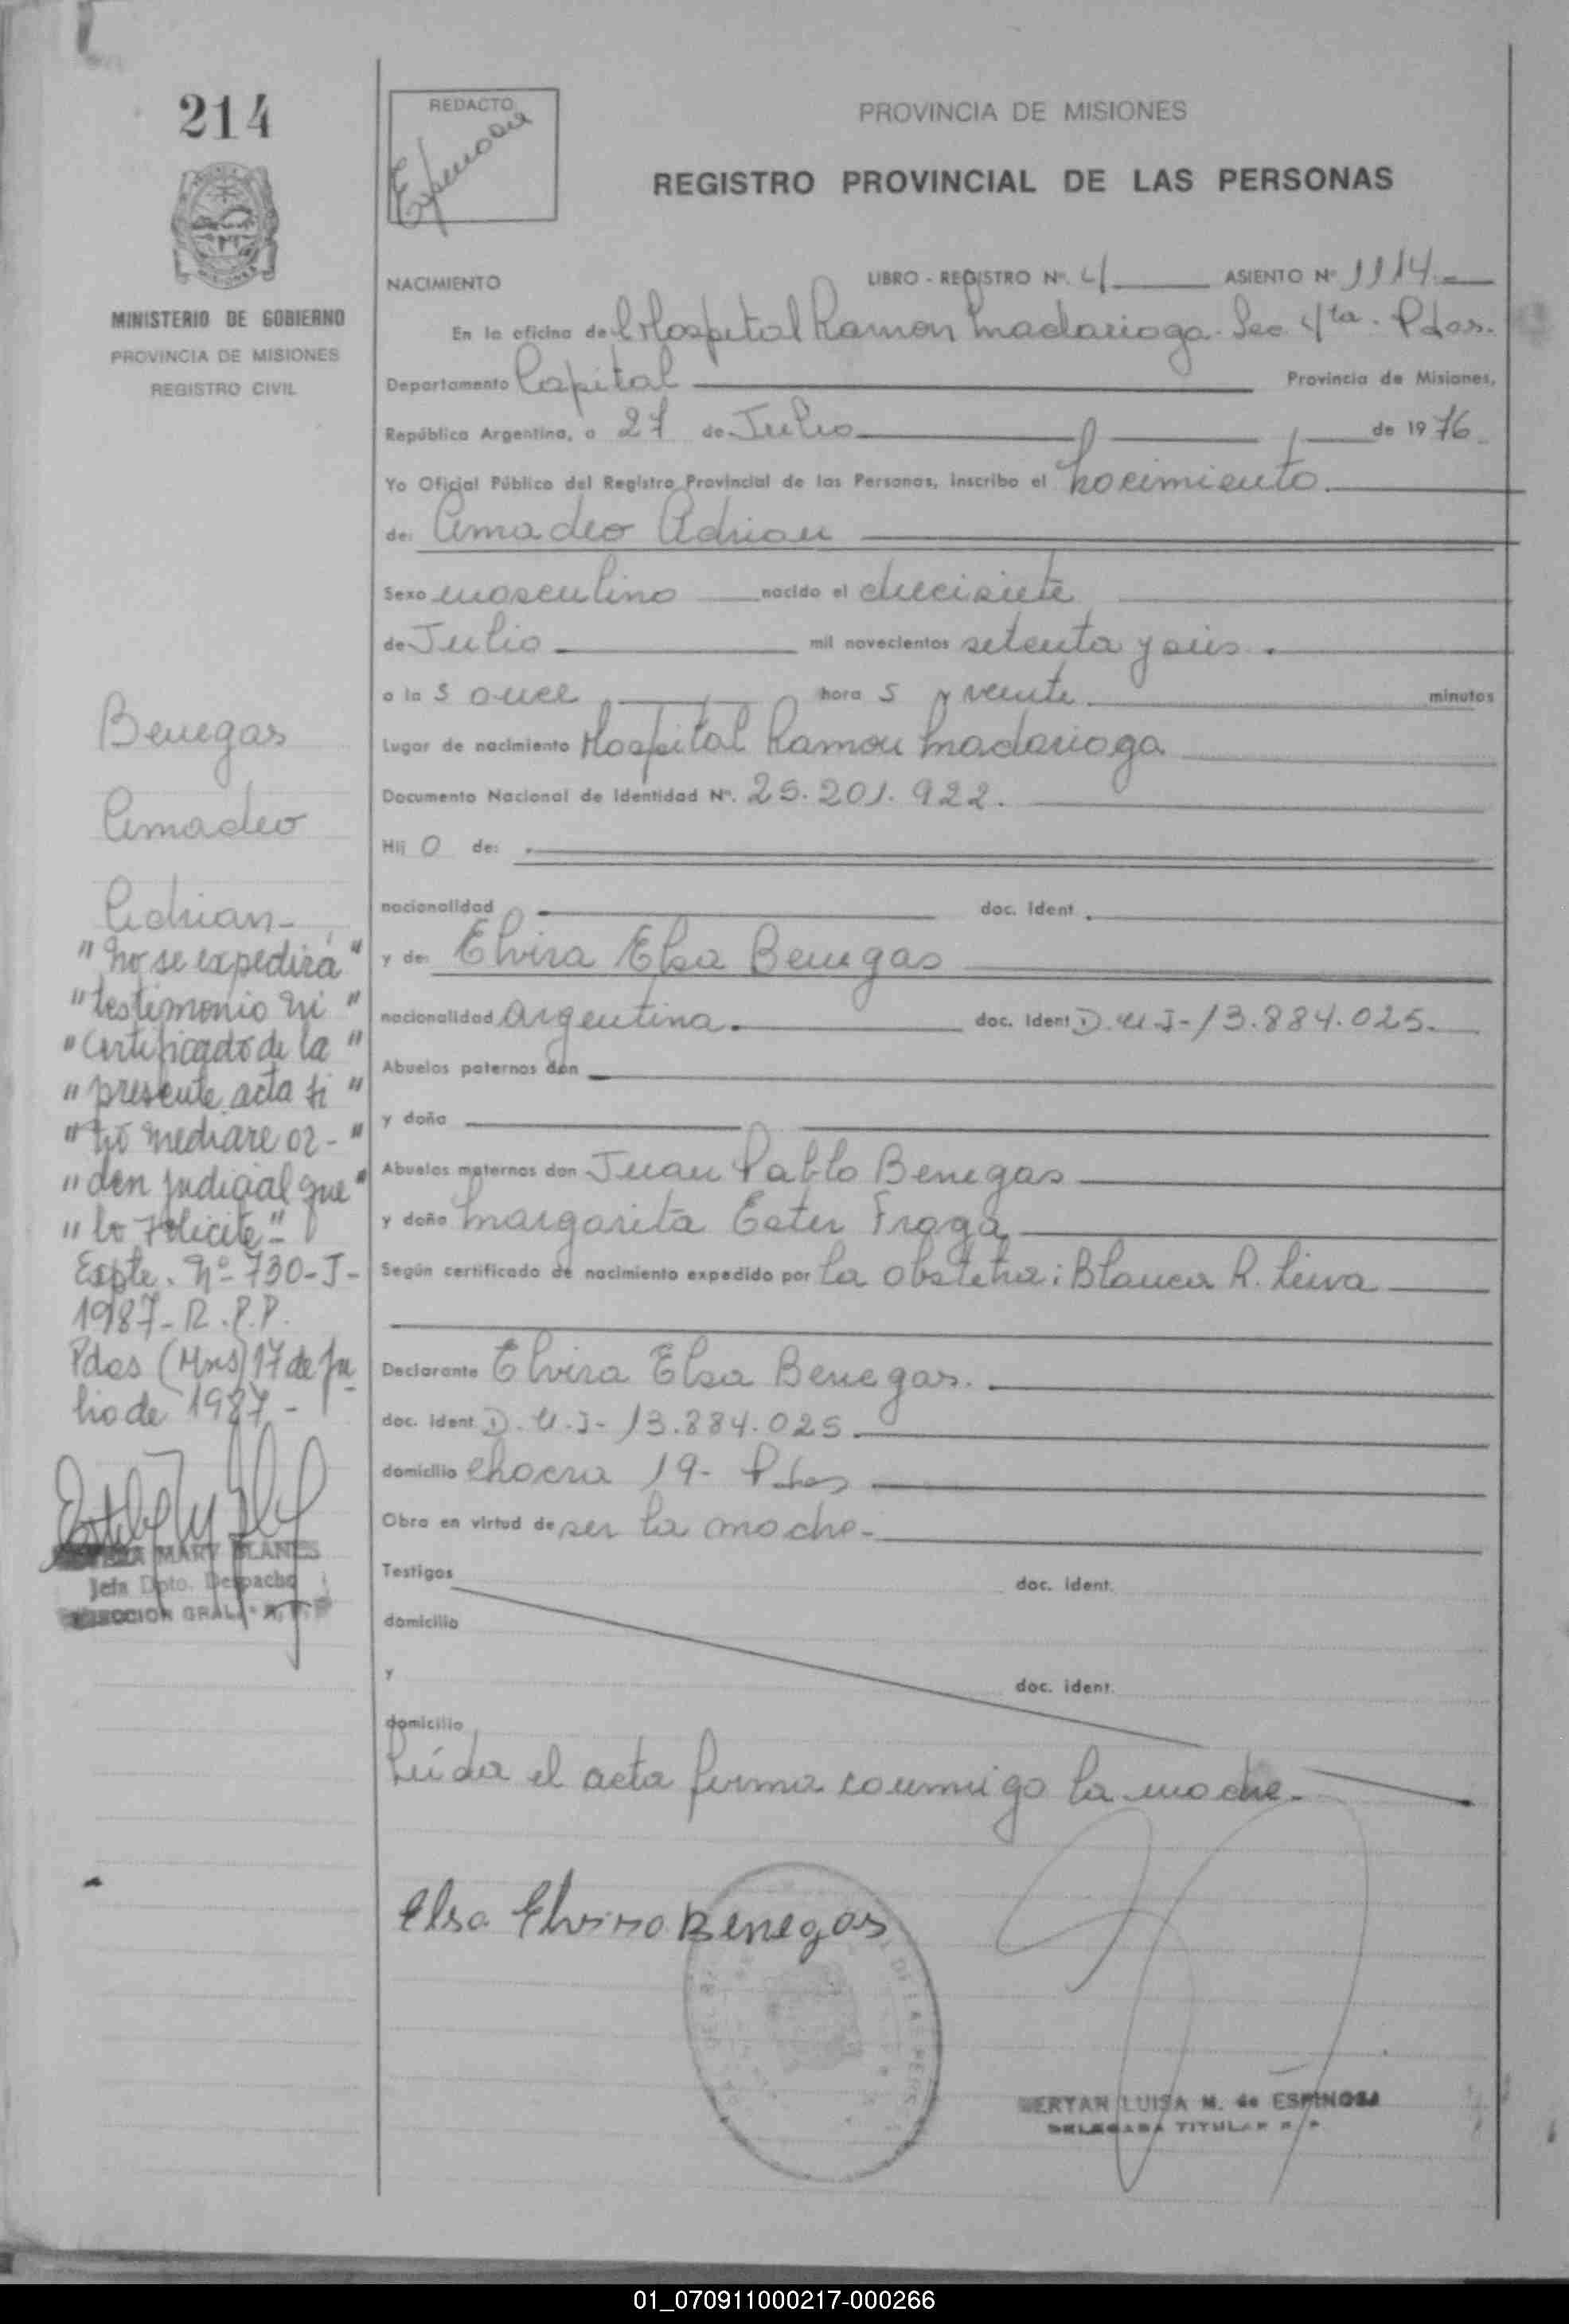 214
REDACTO
Espinosa
PROVINCIA DE MISIONES
REGISTRO PROVINCIAL DE LAS PERSONAS
MINISTERIO DE GOBIERNO
PROVINCIA DE MISIONES
REGISTRO CIVIL
NACIMIENTO LIBRO - REGISTRO Nº. 4 ASIENTO Nº 1114.-
En la oficina del Hospital Ramon Madariaga. Sec 4ta. Pdas.
Departamento Capital Provincia de Misiones,
República Argentina, a 27 de Julio de 1976.
Yo Oficial Público del Registro Provincial de las Personas, inscribo el nacimiento.
de: Amadeo Adrian
Sexo masculino nacido el diecisiete
de Julio mil novecientos setenta y seis.
a las once horas y veinte minutos
Lugar de nacimiento Hospital Ramon Madariaga
Documento Nacional de Identidad Nº. 25.201.922.
Hijo de:
nacionalidad doc. ident.
y de: Elvira Elsa Benegas
nacionalidad argentina. doc. ident D.N.I- 13.884.025.
Abuelos paternos don
y doña
Abuelos maternos don Juan Pablo Benegas
y doña Margarita Ester Fraga
Según certificado de nacimiento expedido por la obstetra: Blanca R. Leiva
Declarante Elvira Elsa Benegas.
doc. ident. D.N.I- 13.884.025.
domicilio Chacra 19- Pdas
Obra en virtud de ser la madre.
Testigos doc. ident.
domicilio
y doc. ident.
domicilio
Leída el acta firma conmigo la madre.
Elsa Elvira Benegas
LUISA M. de ESPINOSA
DELEGADA TITULAR R.P.
Benegas
Amadeo
Adrian-
"No se expedirá"
"testimonio ni"
"Certificado de la"
"presente acta si"
"no mediare or-"
"den judicial que"
"lo solicite"-
Expte. Nº 730-J-
1987-R.P.P.
Pdas (Mns) 17 de Ju
lio de 1987.-
MARY BLANES
Jefa Dpto. Despacho
DIRECCION GRAL.
01_070911000217-000266